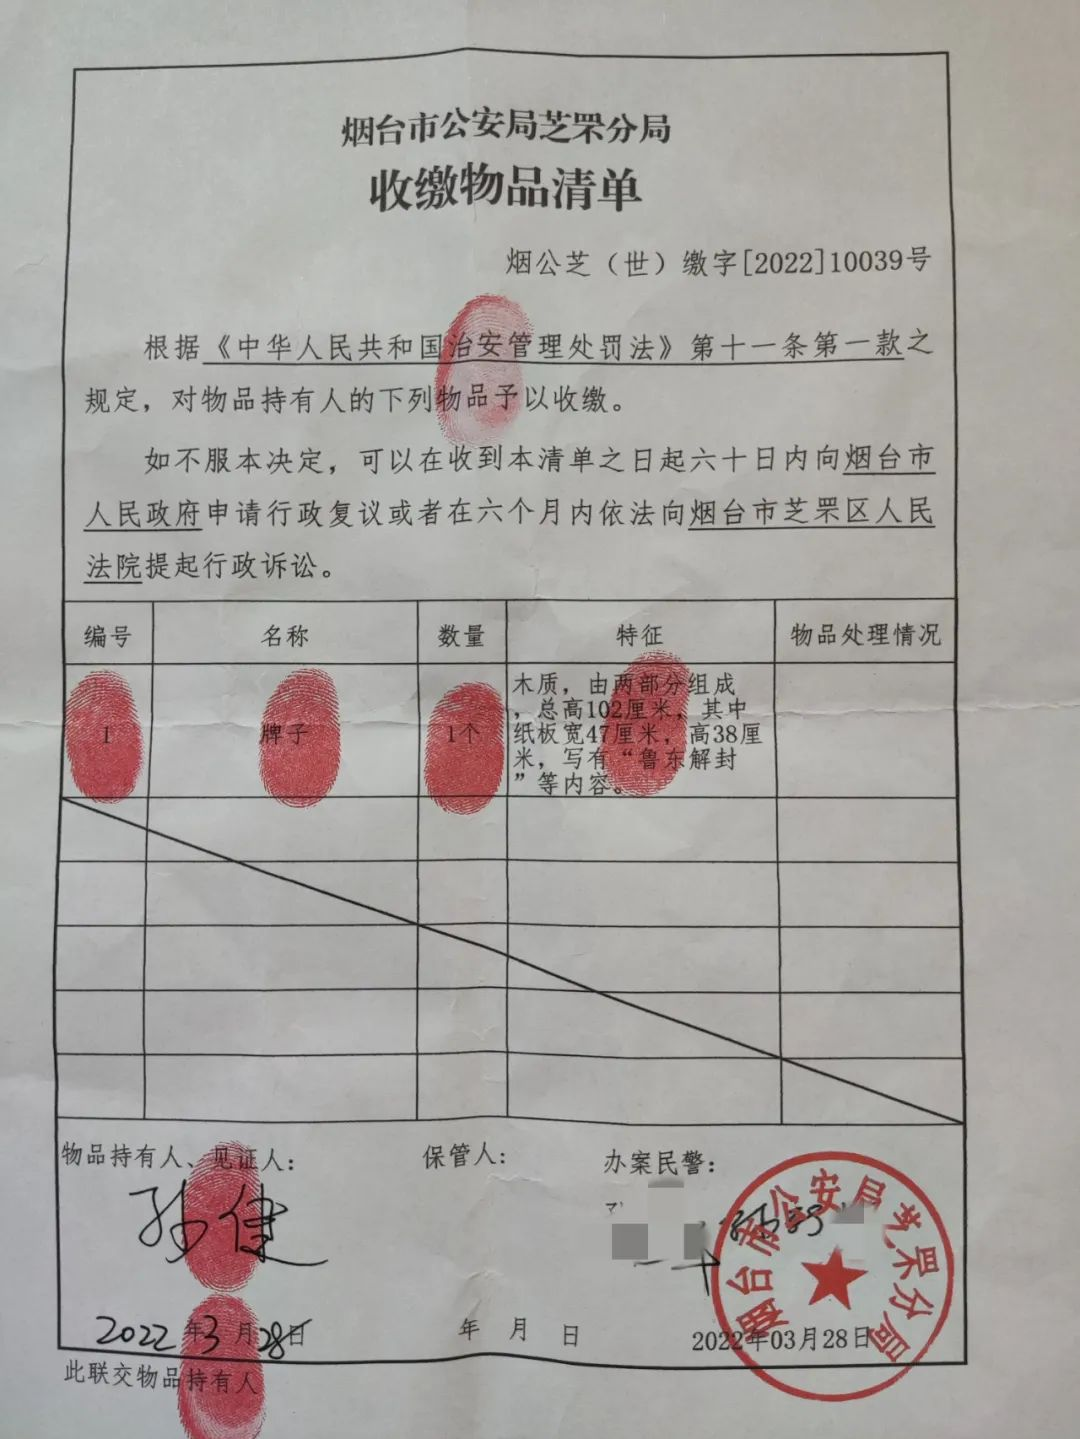 烟台市公安局芝罘分局
收缴物品清单
烟公芝（世）缴字[2022]10039号
根据《中华人民共和国治安管理处罚法》第十一条第一款之
规定，对物品持有人的下列物品予以收缴。
如不服本决定，可以在收到本清单之日起六十日内向烟台市
人民政府申请行政复议或者在六个月内依法向烟台市芝罘区人民
法院提起行政诉讼。
编号 名称 数量 特征 物品处理情况
1 牌子 1个 木质，由两部分组成
，总高102厘米，其中
纸板宽47厘米，高38厘
米，写有“鲁东解封
”等内容。
物品持有人、见证人： 保管人： 办案民警：
孙健
烟台市公安局芝罘分局
2022年3月28日 年 月 日 2022年03月28日
此联交物品持有人